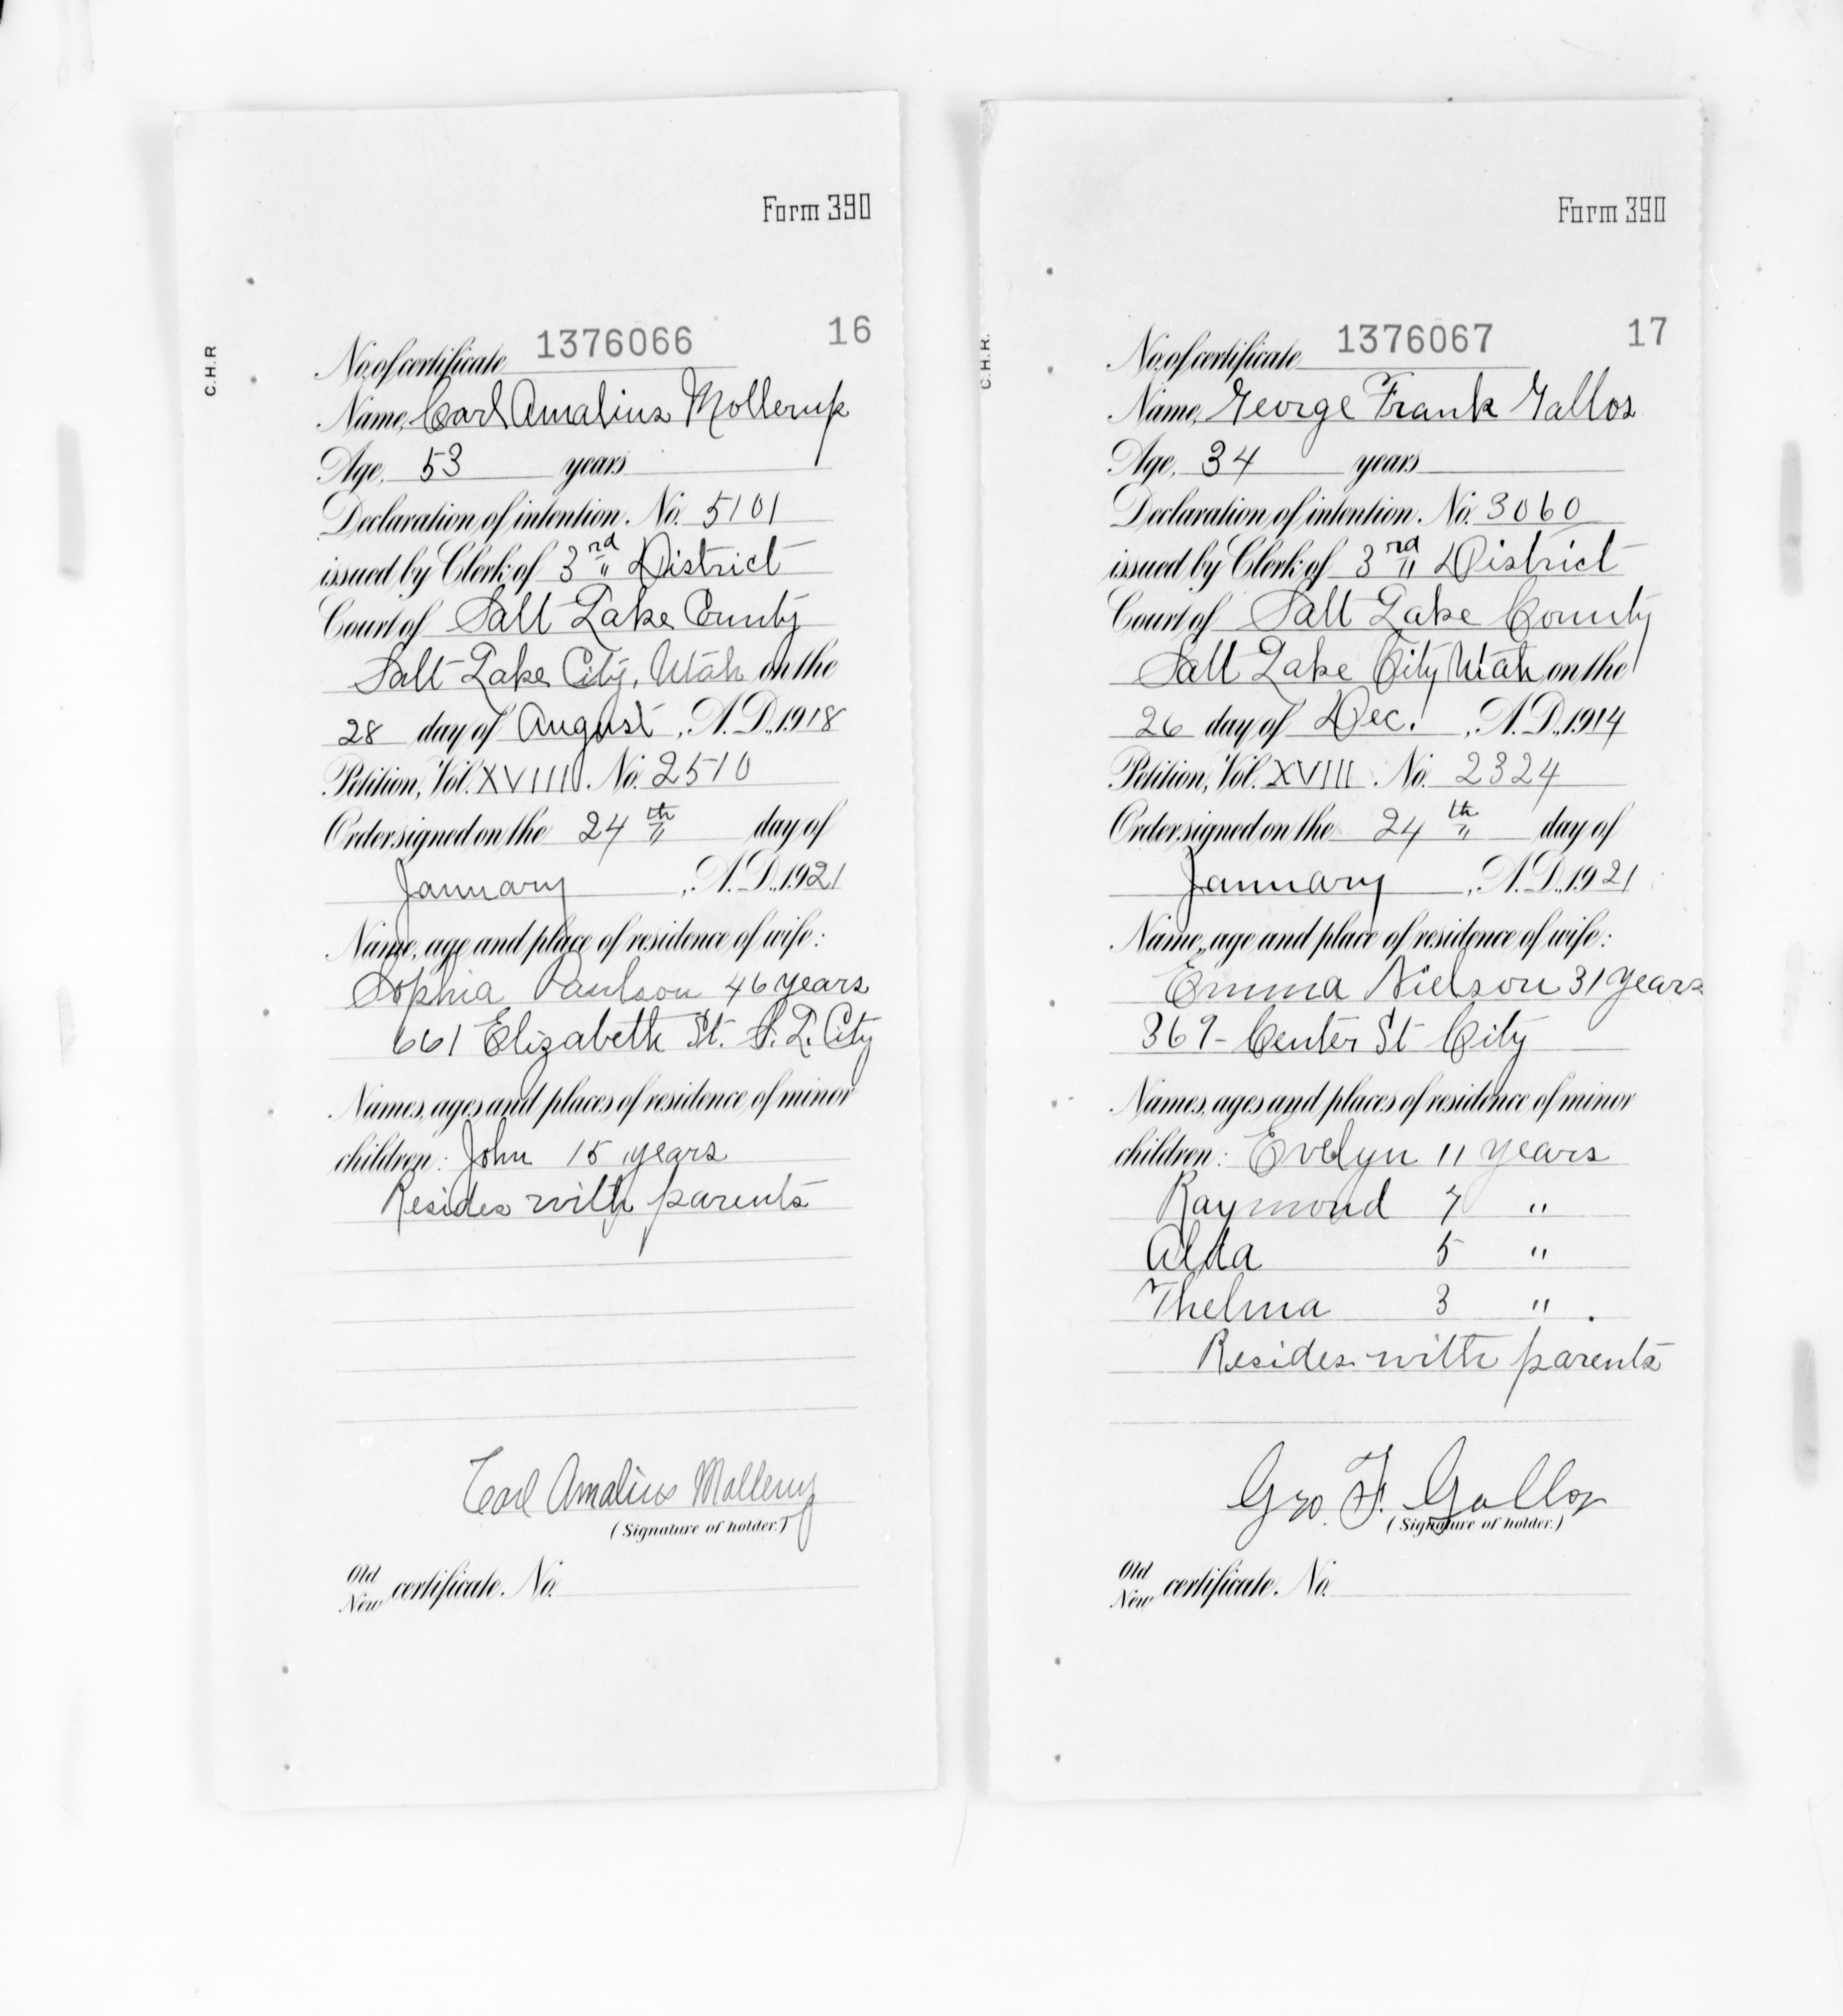 Form 390
C.H.R
16
No. of certificate 1376066
Name, Carl Amalius Mollerup
Age, 53 years
Declaration of intention. No. 5101
issued by Clerk of 3rd " District
Court of Salt Lake County
Salt Lake City, Utah on the
28 day of August, A.D., 1918
Petition, Vol. XVIII. No. 2510
Order signed on the 24th " day of
January, A.D., 1921
Name, age and place of residence of wife:
Sophia Paulson 46 years
661 Elizabeth St. S.L. City
Names, ages and places of residence of minor
children: John 15 years
Resides with parents
Carl Amalius Mollerup
(Signature of holder.)
Old
New certificate. No.
Form 390
C.H.R.
17
No. of certificate 1376067
Name, George Frank Gallos
Age, 34 years
Declaration of intention. No. 3060
issued by Clerk of 3rd " District
Court of Salt Lake County
Salt Lake City Utah on the
26 day of Dec., A.D., 1914
Petition, Vol. XVIII. No. 2324
Order signed on the 24th " day of
January, A.D., 1921
Name, age and place of residence of wife:
Emma Nielson 31 years
369- Center St City
Names, ages and places of residence of minor
children: Evelyn 11 years
Raymond 7 "
Alda 5 "
Thelma 3 " .
Resides with parents
Geo. F. Gallos
(Signature of holder.)
Old
New certificate. No.